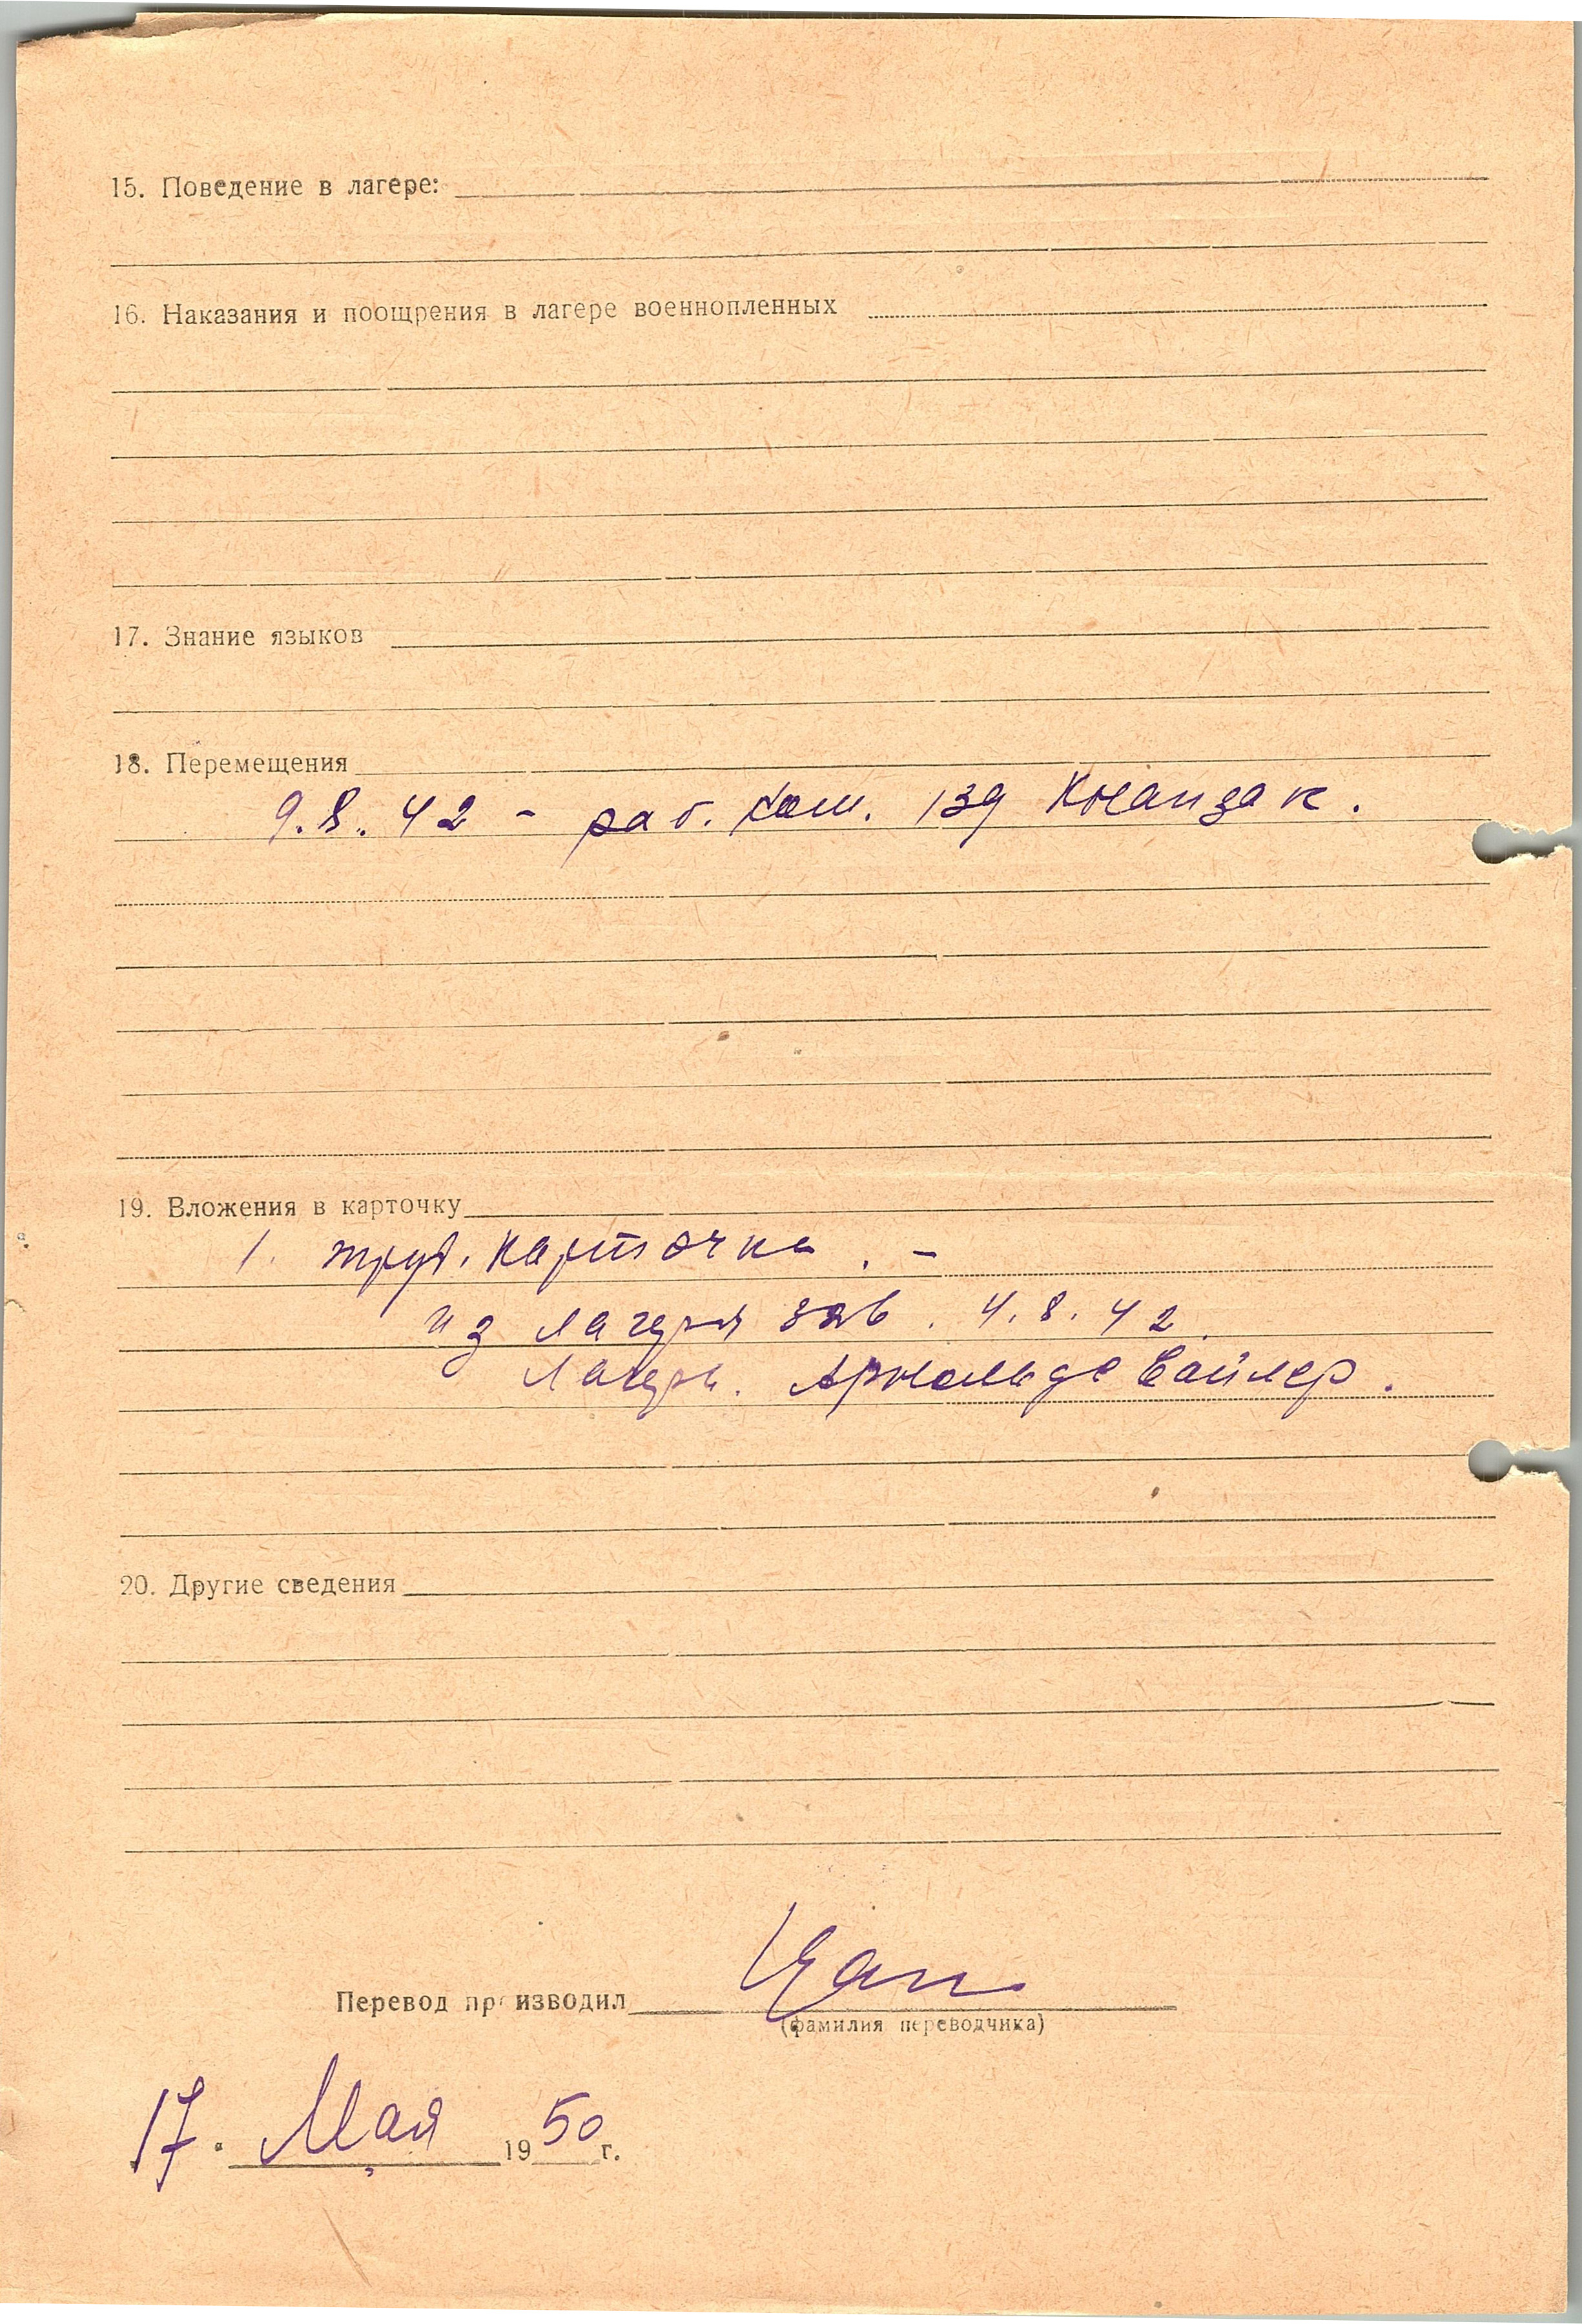 15. Поведение в лагере:
16. Наказания и поощрения в лагере военнопленных
17. Знание языков
18. Перемещения
9.8.42 - раб. ком. 139
19. Вложения в карточку
1. труд. карточка. -
из лагеря 4.8.42.
Лагерь. Арнольдсвайлер.
20. Другие сведения
Перевод производил
(фамилия переводчика)
17. Мая 1950 г.